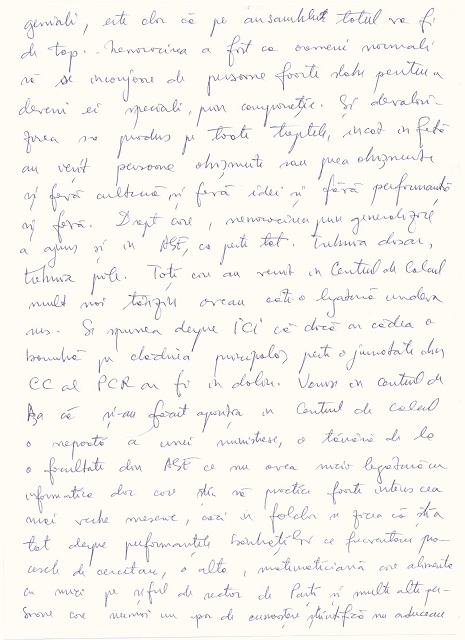 geniali, este clar că pe ansamblu totul va fi
de top. Nenorocirea a fost ca oameni normali
să se inconjoare de persoane foarte slabe pentru a
deveni ei speciali, prin comparație. Și devalori-
zarea s-a produs pe toate treptele, incat in față
au venit persoane obișnuite sau prea obișnuite
și fără cultură și fără idei și fără performanță
și fără. Drept care, nenorocirea prin generalizare
a ajuns și in ASE, ca peste tot. Trebuia doar,
trebuia pile. Toti care au venit in Centrul de Calcul
mult mai târziu aveau câte o legatură undeva
sus. Si spunea despre ICI că dacă ar cădea o
bombă pe clădirea principală, peste o jumatate din
CC al PCR ar fi in doliu. Venise in centrul de
așa că și-au făcut apariția in Centrul de calcul
o nepoată a unei ministrese, o tânără de la
o facultate din ASE ce nu avea nicio legatură cu
informatica dar care știa să practice foarte intens cea
mai veche meserie, căci in folclor se zicea că știa
tot despre performanțele bărbaților ce frecventau pro-
cesele de cercetare, o alta, matematiciană care alimenta
cu nurii pe șeful de sector de Partid și multe alte per-
soane care numai un spor de cunoaștere științifică nu aduceau